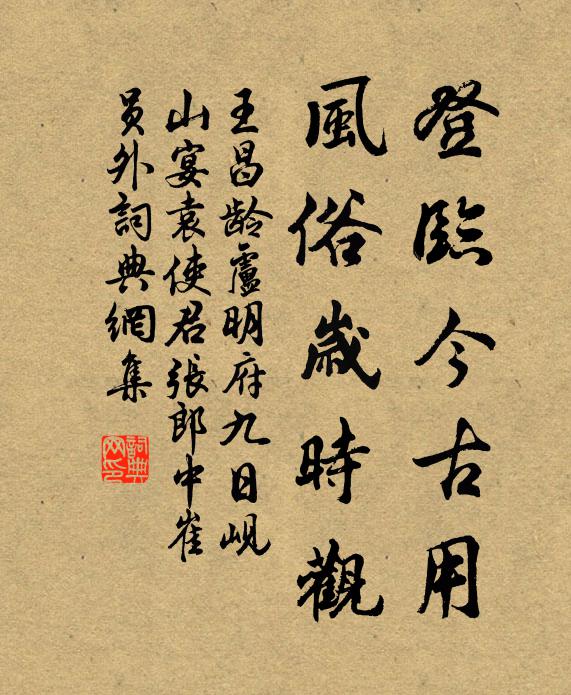 登臨今古用
風俗歲時觀
王昌齡盧明府九日峴
山宴袁使君張郎中崔
員外詞典網集
詞典网印